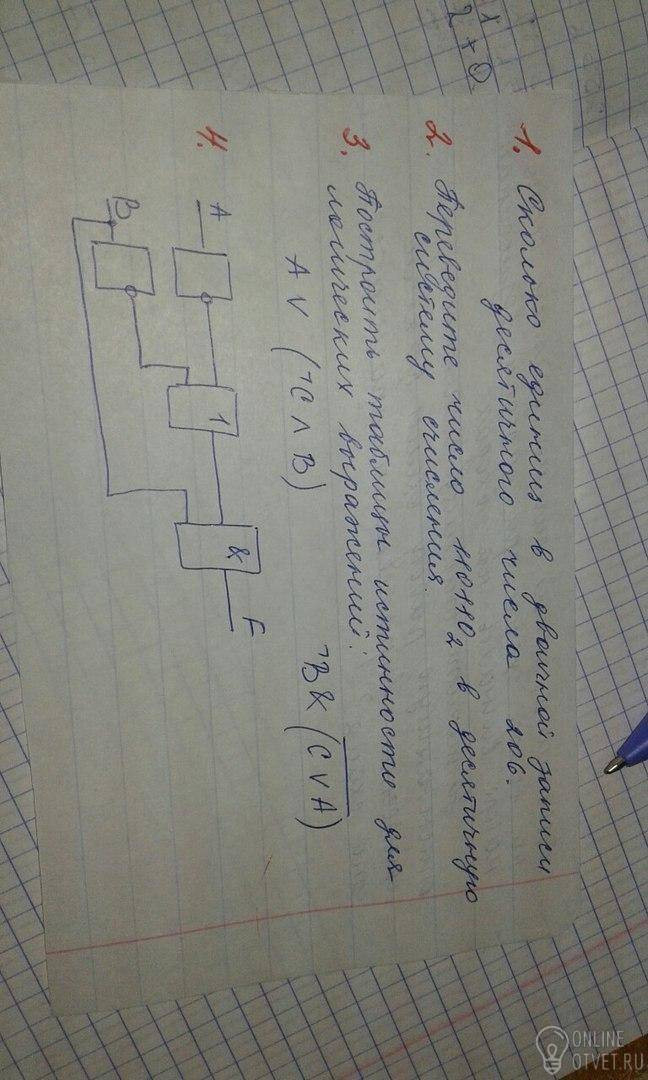 1. Сколько единиц в двоичной записи
десятичного числа 206.
2. Переведите число 110110₂ в десятичную
систему счисления.
3. Построить таблицы истинности для
логических выражений:
A ∨ (¬C ∧ B)
¬B & (C ∨ A)
4.
A
1
&
F
B
x
2
ONLINE
OTVET.RU